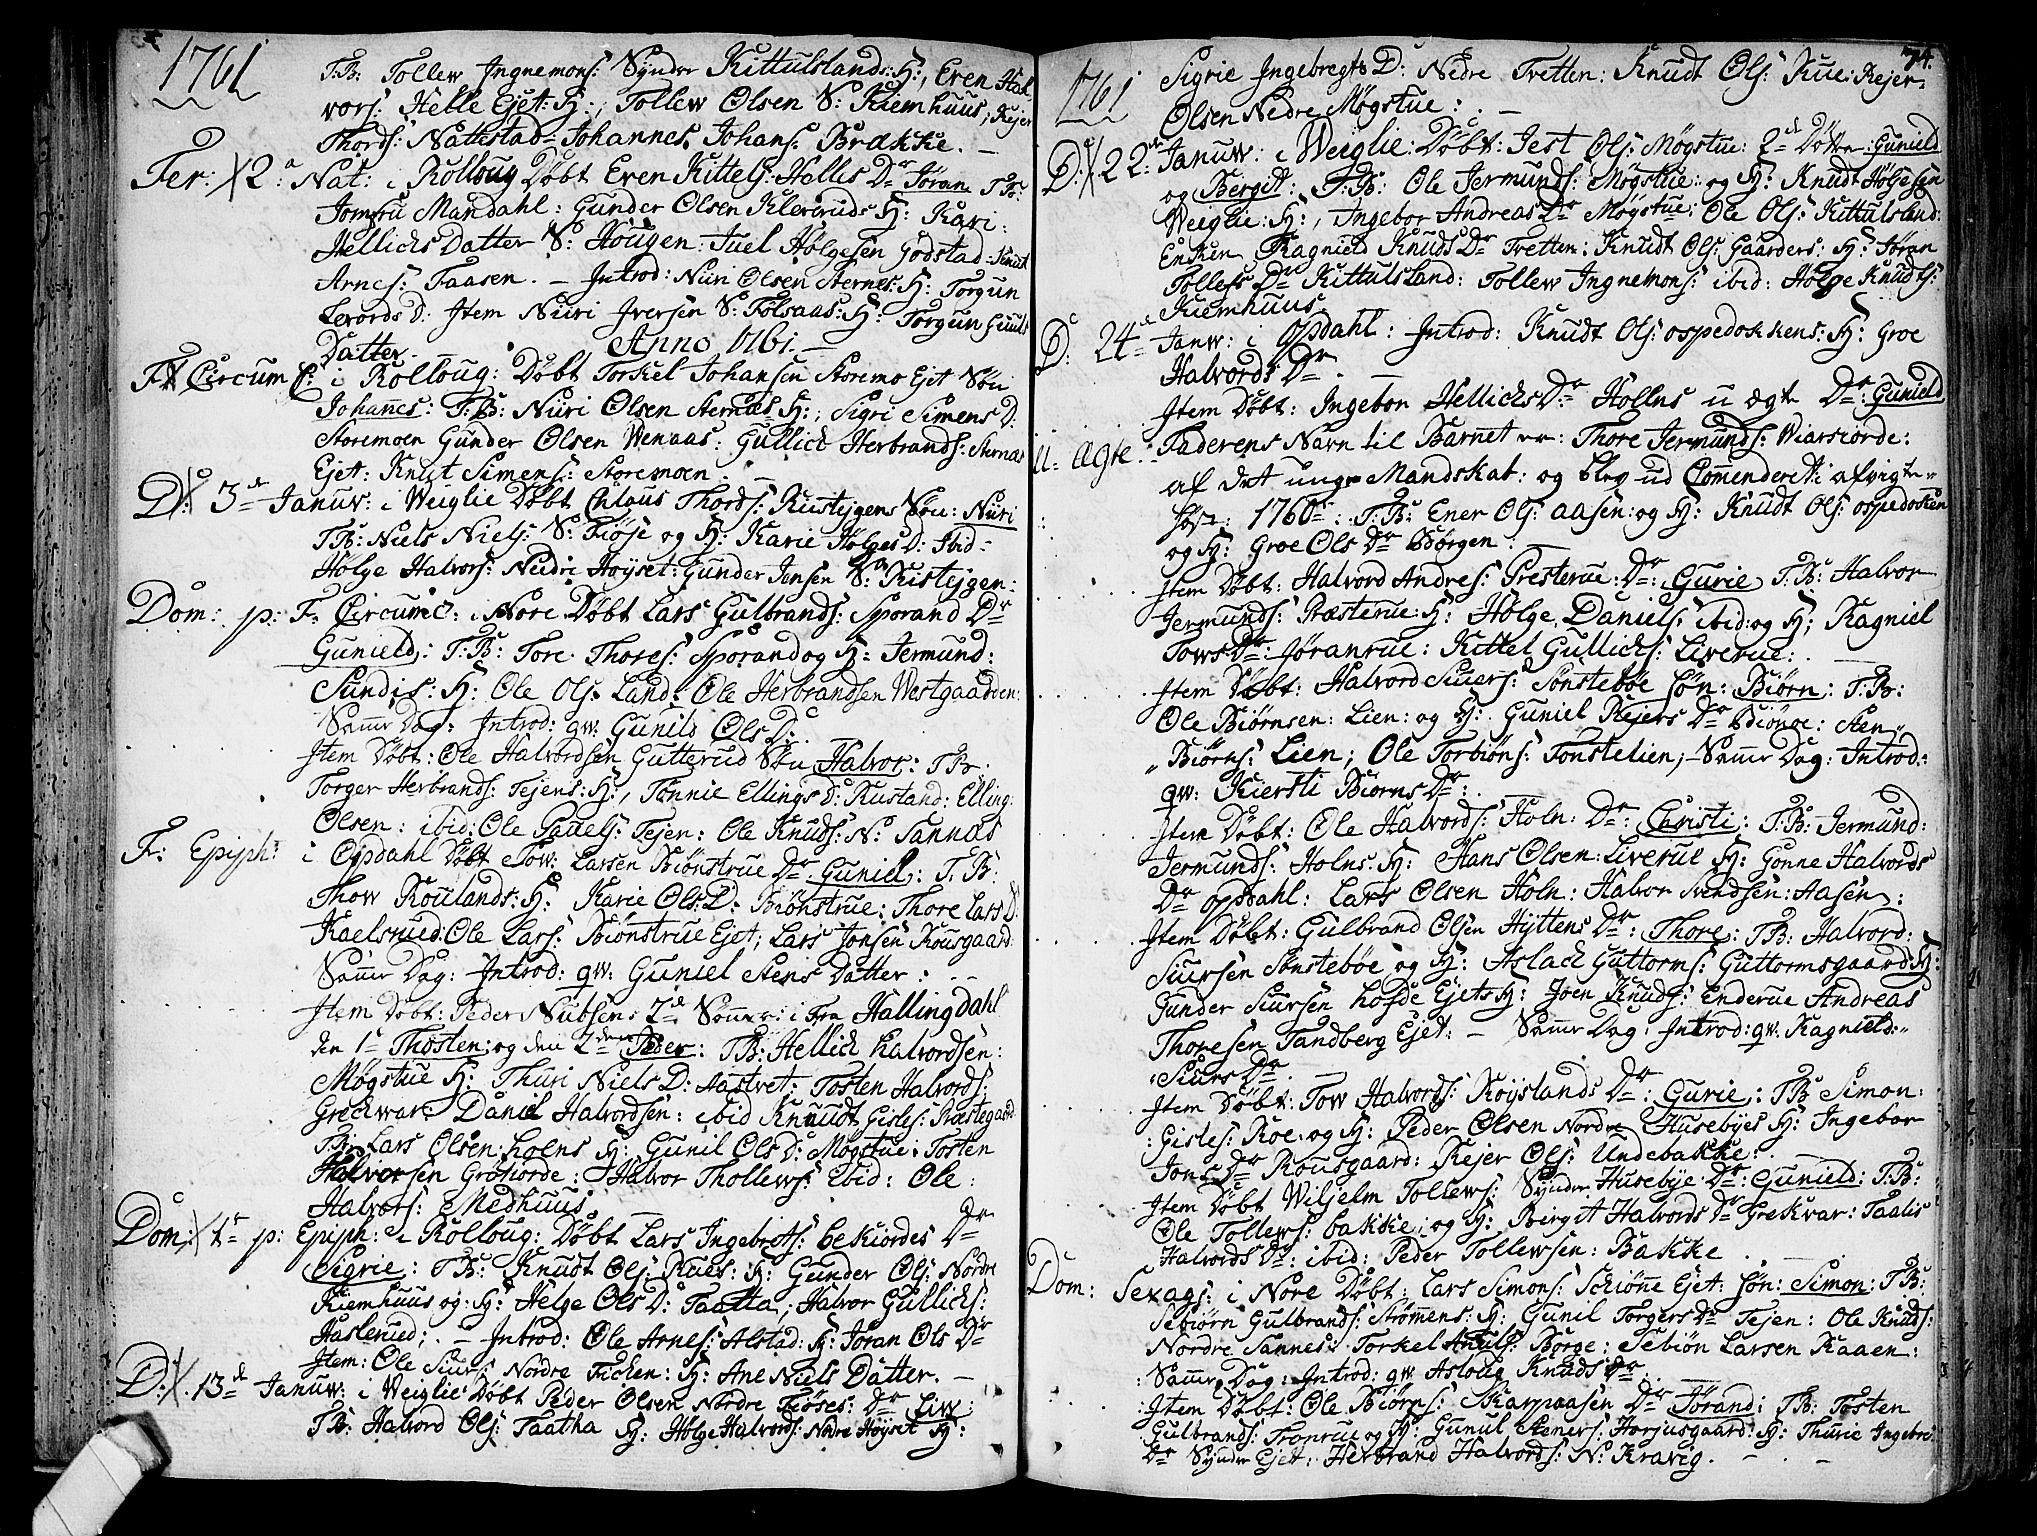 1761
T: B: Tollew Ingnemons: Syndre Kittulslands: H:, Even Hal
vors: Helle Ejet: H:, Tollew Olsen S: Kiemhuus, Rejer
Thords: Nattestad: Johannes Johans: Brække. —
Fer: 2a Nat: i Rolloug Døbt Even Kittels: Hellis Dr Jøran T: B:
Jomfru Mandahl: Gunder Olsen Klerruds H: Kari
Hellichs Datter S: Hougen. Juel Holgesen Godstad: Knut
Arnes: Faasen. — Introd: Nuri Olsen Sternes: H: Torgun
Levords D: Item Nuri Iversen S: Folsaas: H: Torgun
Datter. — Anno 1761. —
F: Circum C: i Rolloug: Døbt Torkel Johansen Storemo Ejet Søn
Johannes: T: B: Nuri Olsen Sternæs H:, Sigri Simens D:
Storemoen Gunder Olsen Wenaas: Gullich Herbrands: Sternæs
Ejet: Knut Simens: Storemoen. —
D: 3de Januw: i Weiglie Døbt Chlaus Thords: Rustejgens Søn: Nuri
T: B: Niels Niels: S: Fiøse og H: Karie Holges D: Ibid:
Holge Halvors: Nedre Høyset: Gunder Jonsen S: Ristejgen:
Dom: p: F: Circumc: i Nore Døbt Lars Gulbrands: Sporand Dr
Gunield: T: B: Tore Thores: Sporand og H: Jermund:
Sundis: H: Ole Ols: Land: Ole Herbrandsen Westgaarden:
Samme Dag: Introd: qw: Gunild Ols D:
Item Døbt: Ole Halvordsen Gutterud Søn Halvor: T: B:
Torger Herbrands: Tejens: H:, Tønnie Ellings D: Rustand: Elling:
Olsen: ibid: Ole Pauels: Tejen: Ole Knuds: N: Sannæs
F: Epiph: i Opdahl Døbt Tow: Larsen Biønstrue Dr Guniel: T: B:
Thow Roulands: H: Karie Ols: D: Biønstrue: Thore Lars D
Kaelsrued: Ole Lars: Biønstrue Ejet; Lars Jonsen Rousgaard
Samme Dag: Introd: qw: Guniel Stens Datter: —
Item Døbt: Peder Nubsen: 2de Sønner: i fra Hallingdahl
den 1te Thosten: og den 2den Peder: T: B: Hellich Halvordsen:
Møgstue H: Thuri Niels D: Aastvet: Tosten Halvords:
Greckwar: Daniel Halvordsen: ibid Knuudt Gisles: Præstegaard
T: B: Lars Olsen: Holns H: Gunil Ols D: Møgstue: Tosten
Halvorsen Grosiorde: Halvor Thollews: Ibid: Ole:
Halvors: Medhuus —
Dom: 1te p: Epiph: i Rolloug: Døbt Lars Ingebrets: bekiordes Dr
Sigrie: T: B: Knudt Ols: Rues: H: Gunder Ols: Nordre
Kiemhuus og: H: Helge Ols D: Taatta; Halvor Gullichs:
Haslerued; — Introd: Ole Arnes: Alstad: H: Jøran Ols Dr
Item: Ole Siurs: Nordre Ficken: H: Ane Niels Datter. —
D: 13de Januw: i Weiglie Døbt Peder Olsen Nordre Fiøses: Dr Liw:
T: B: Halvord Ols: Taatha H: Holge Halvords: Nedre Høyset H:
74.
1761
Sigrie Ingebregts D: Nedre Tretten: Knudt Ols: Rue: Rejer
Olsen Nedre Møgstue: —
D: 22de Januw: i Weiglie: Døbt: Jest Ols: Møgstue: 2de Døttre: Gunield
og Bergit: T: B: Ole Jermunds: Møgstue: og H: Knudt Holgesen
Weiglie: H:, Ingebor Andreas Dr Møgstue: Ole Ols: Kittulsland:
Enken Ragnield Knuds Dr Tretten: Knudt Ols: Gaarders: H: Jøran
Tollefs Dr Kittulsland: Tollew Ingnemons: ibid: Holge Knudts:
Kiemhuus
D: 24de Januw: i Opdahl: Introd: Knudt Ols: ospedokkens: H: Groe
Halvords Dr. —
Item Døbt: Ingebor Hellichs Dr Hollns u ægte Dr: Gunield
U: Ægte: Faderens Navn til Barnet er: Thore Jermunds: Wiarsiorde:
af det unge Mandskab: og blev ud Comenderet: i afvigte
høst: 1760: T: B: Ener Ols: Aasen: og H: Knudt Ols: ospedokken
og H: Groe Ols Dr Børgen: —
Item Døbt: Halvord Andres: Presterue: Dr: Gurie T: B: Halvor
Jermunds: Præsterue: H: Holge Daniels: ibid: og H: Ragniel
Tows Dr: Jøranrue: Kittel Gullichs: Liverue: —
Item Døbt: Halvord Siuers: Sønsteboe Søn: Biørn: T: B:
Ole Biørnsen: Lien: og H: Guniel Rejers Dr Biønoe: Sten
Biørns: Lien; Ole Torbiøns: Tonstelien; — Samme Dag: Introd:
qw: Kiersti Biørns Dr:
Item Døbt: Ole Halvords: Holn: Dr: Christi: T: B: Jermund:
Jermunds: Holns: H: Hans Olsen: Liverue H: Gonne Halvords
Dr opdahl: Lars Olsen Holn: Halvor Svendsen: Aasen:
Item Døbt: Gulbrand Olsen Hyttens Dr: Thore: T: B: Halvord:
Siursen Sønsteboe og H: Aslach Guttorms: Guttormsgaard: H:
Gunder Siursen Hofde Ejets H: Joen Knuds: Enderue Andreas
Thoresen Tandberg Ejet: — Samme Dag: Introd: qw. Ragnield:
Siurs Dr
Item Døbt: Tow Halvords: Røyslands Dr: Gurie: T: B: Simon:
Gisles: Roe: og H: Peder Olsen Nordre Husebyes H: Ingebor
Jons Dr Rousgaard: Rejer Ols: Undebakke: —
Item Døbt Wilhelm Tollews: Syndre Husebye: Dr: Gunield: T: B:
Ole Tollews: bakke: og H: Birgit Halvords Dr Grekvar: Taalis
Halvords Dr: ibid: Peder Tollewsen: Bakke. —
Dom: Sexag: i Nore Døbt: Lars Simons: Schiøne Ejet: Søn: Simon: T: B:
Sebiørn Gulbrands: Strømmens: H: Gunil Torgers Dr Tejen: Ole Knuds:
Nordre Sannes: Torkel Knuts: Borge: Sebiøn Larsen Kaaen:
Samme Dag: Introd: qw Asloug Knuds Dr
Item Døbt: Ole Biørns: Skarpaasen Dr Jørand: T: B: Tosten
Gulbrands: Tronrue og H: Gunul Steners: Horjusgaard: H: Thurie Ingebre
Dr Syndre Ejet: Herbrand Halvords: N: Kravig. —